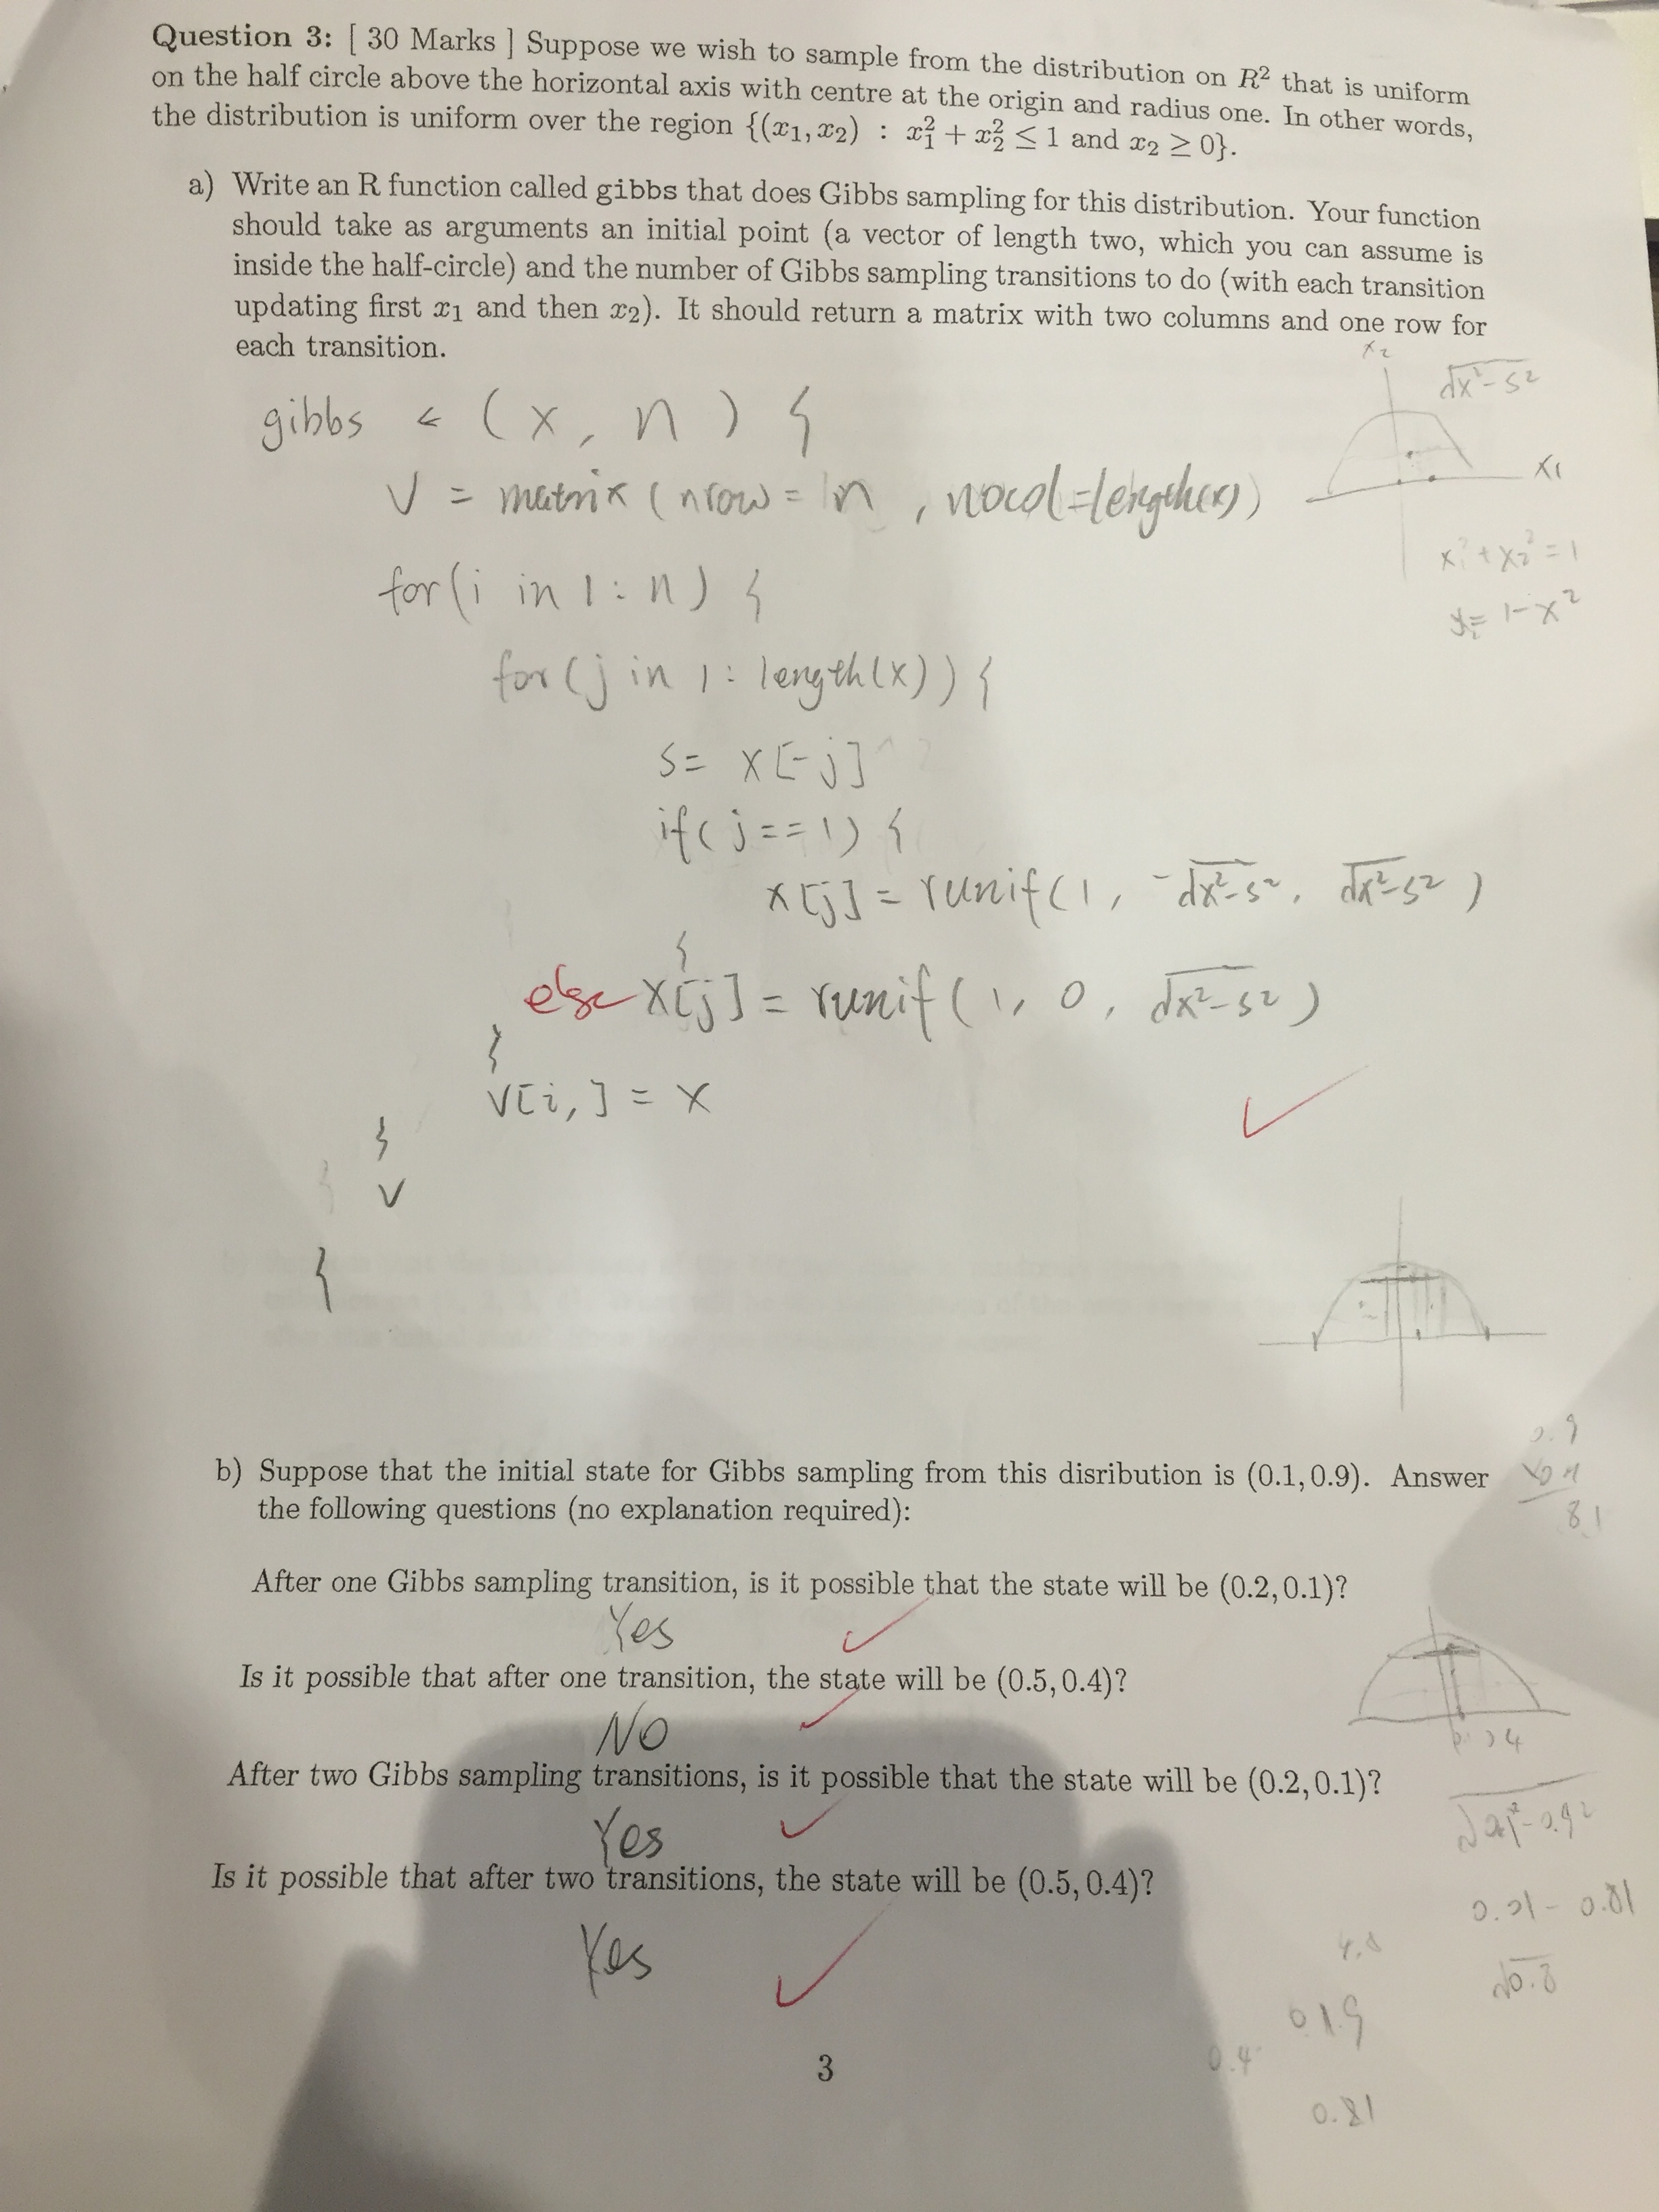 Question 3: [ 30 Marks ] Suppose we wish to sample from the distribution on R² that is uniform
on the half circle above the horizontal axis with centre at the origin and radius one. In other words,
the distribution is uniform over the region {(x₁, x₂) : x₁² + x₂² ≤ 1 and x₂ ≥ 0}.
a) Write an R function called gibbs that does Gibbs sampling for this distribution. Your function
should take as arguments an initial point (a vector of length two, which you can assume is
inside the half-circle) and the number of Gibbs sampling transitions to do (with each transition
updating first x₁ and then x₂). It should return a matrix with two columns and one row for
each transition.
x₂
√dx²-s²
gibbs < (x, n) {
x₁
V = matrix (nrow = n , nocol=length(x))
x₁² + x₂² = 1
for(i in 1 : n) {
x₂= 1-x²
for(j in 1 : length(x)) {
s= x[-j]
if(j==1) {
x[j] = runif(1, -√dx²-s², √dx²-s²)
}
else x[j] = runif(1, 0, √dx²-s²)
}
V[i,] = x
}
V
}
b) Suppose that the initial state for Gibbs sampling from this disribution is (0.1, 0.9). Answer
the following questions (no explanation required):
0.9
81
After one Gibbs sampling transition, is it possible that the state will be (0.2, 0.1)?
Yes
Is it possible that after one transition, the state will be (0.5, 0.4)?
NO
After two Gibbs sampling transitions, is it possible that the state will be (0.2, 0.1)?
Yes
Is it possible that after two transitions, the state will be (0.5, 0.4)?
Yes
0.01 - 0.81
√0.8
0.19
0.4
0.81
3